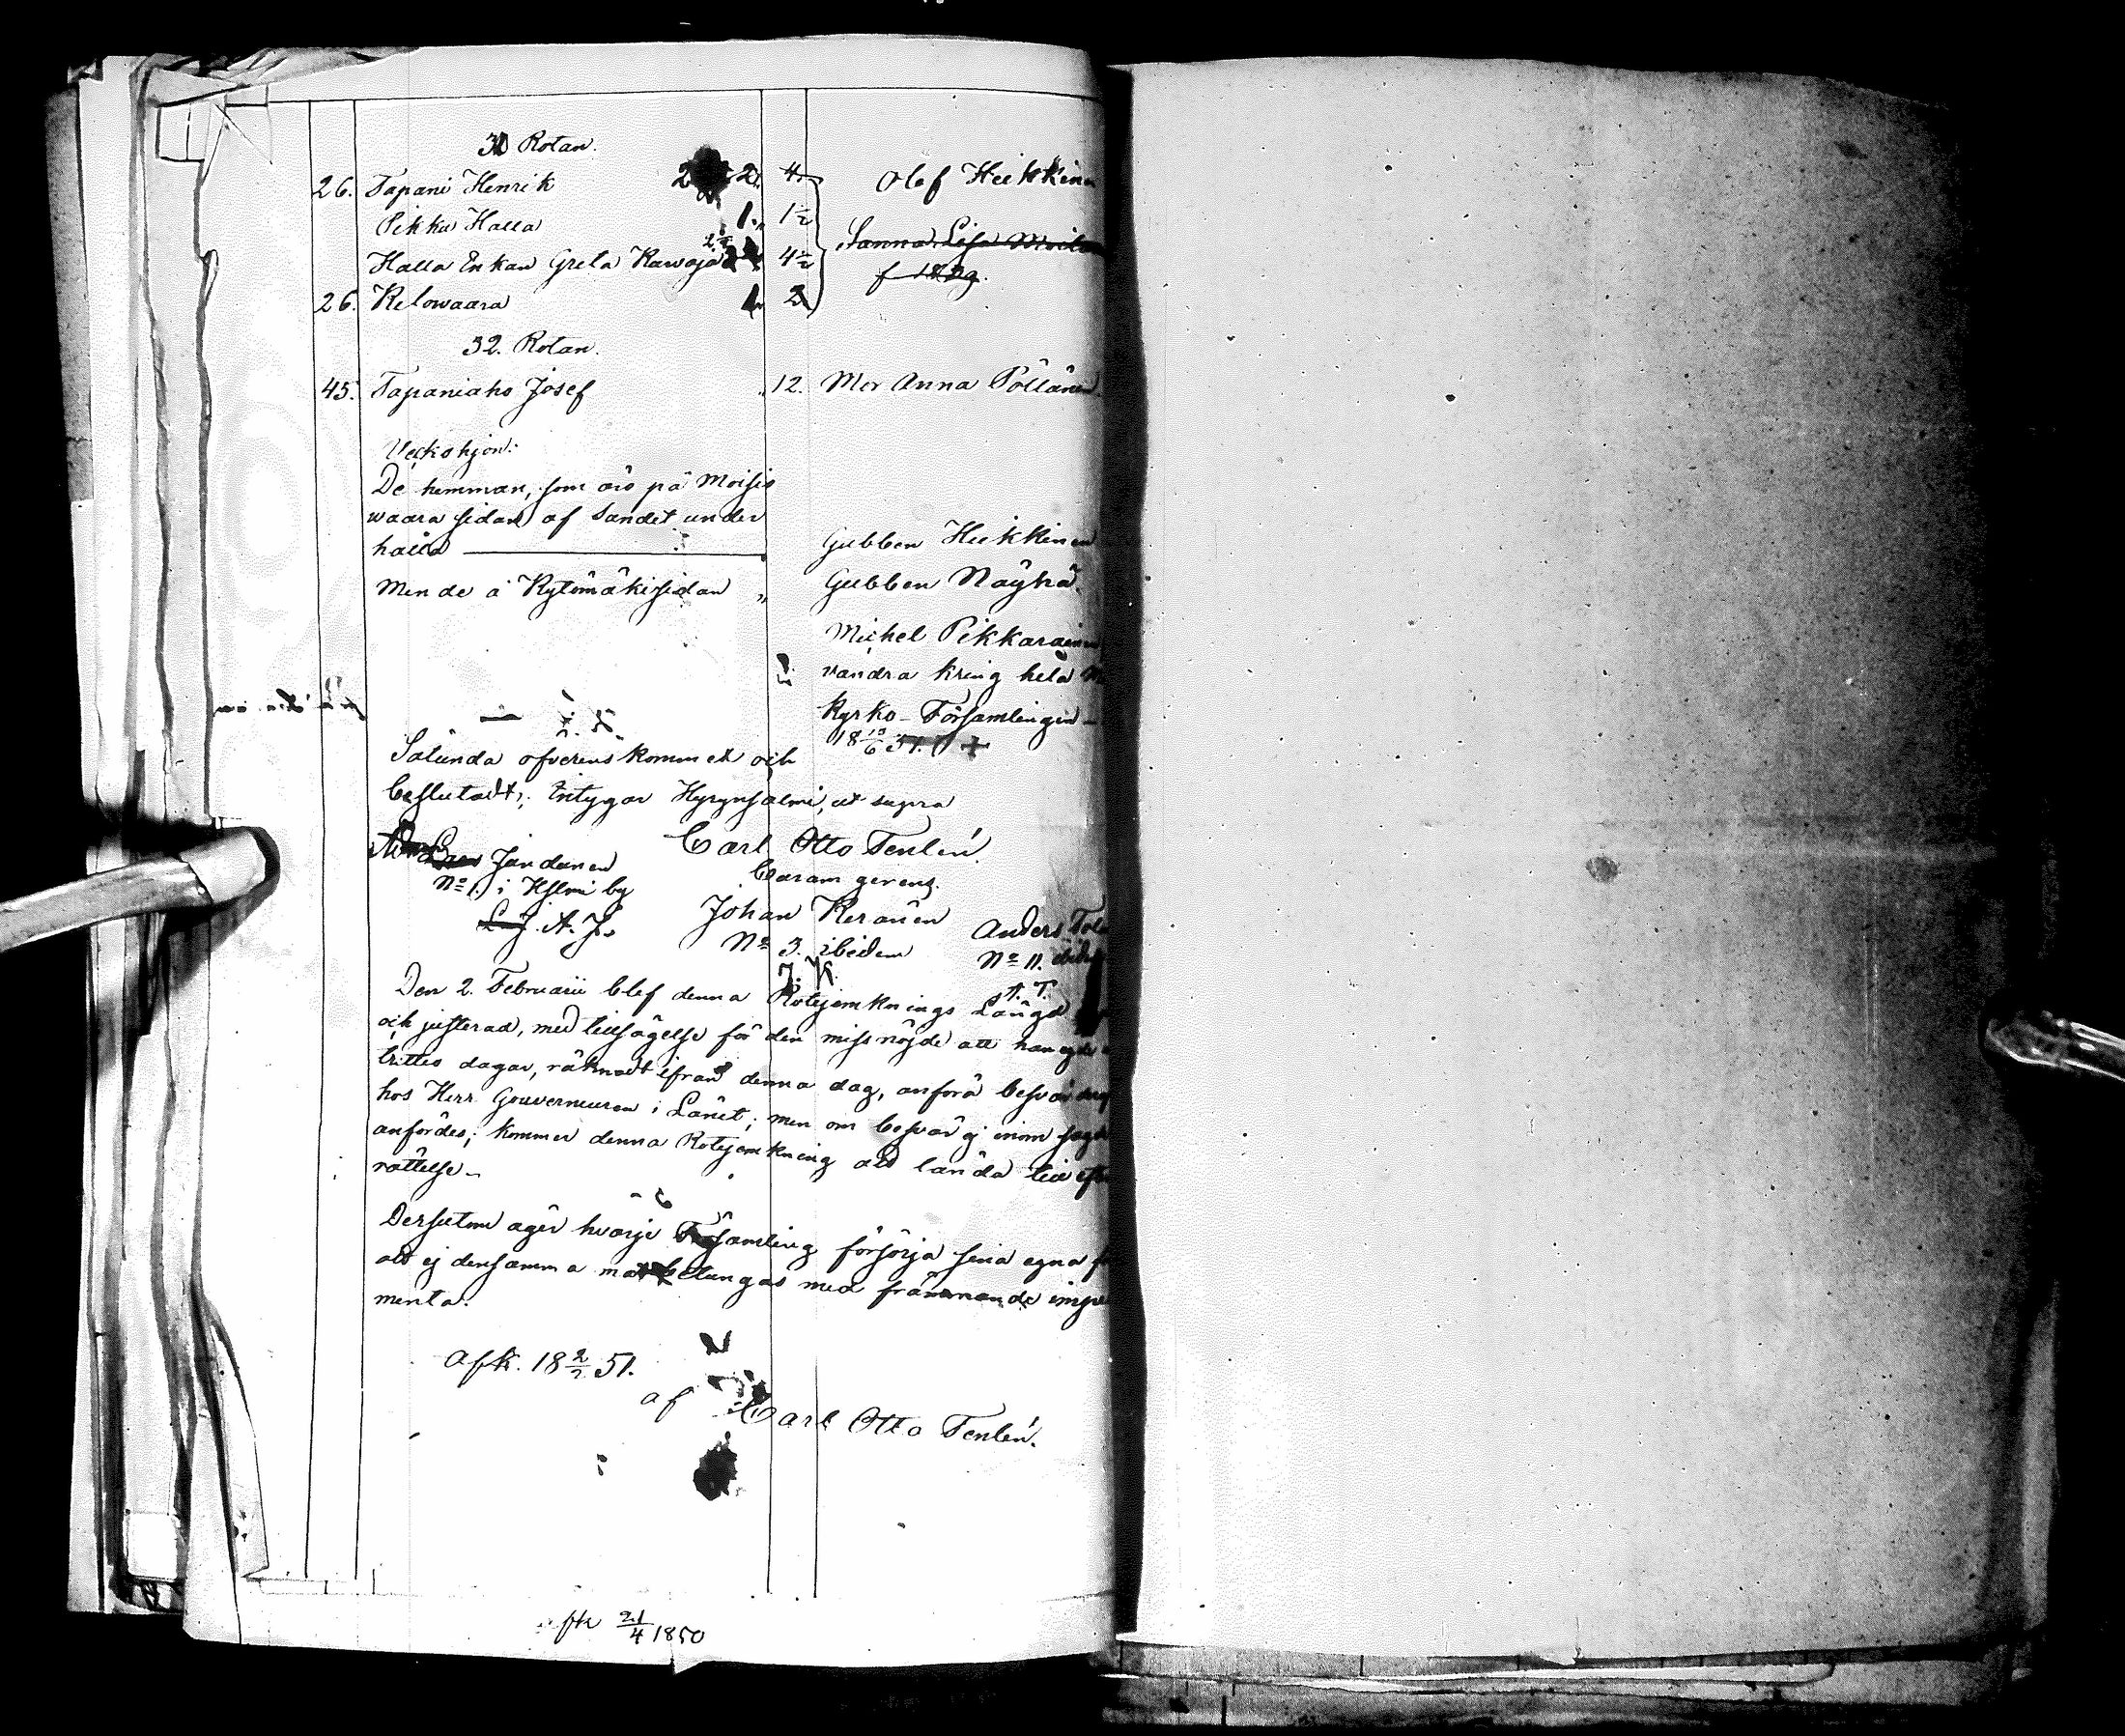 31 Rotan.
26. Tapani Henrik 2 2. 4. Olof Heikkinen
Pikku Halla 1. 1½
Halla Enkan Greta Kawaja 4½ Sanna Lisa
f 1829.
26. Kelowaara 1. 2
32. Rotan.
45. Tapaniaho Josef „ 12. Mor Anna Pöllänen
Veckohjon:
De hemman, som äro på Moisio
waara sidan af Sandet under
hålla — Gubben Heikkinen
Men de å Kytömäki sidan „ Gubben Näyhä.
Michel Pikkarainen
vandra kring hela
Kyrko-Församlingen
18 19/6 51. +
Sålunda öfverenskommet och
beslutadt; Intygar Hyrynsalmi, ut supra
Carl Otto Tenlén.
Curam gerens.
Jandunen
No 1. i Hslmi by
A. J.
Johan Keränen
No 3. ibidem
J. K.
Anders
No 11.
A. T.
Den 2. Februarii blef denna Rotejemknings Längd
och justerad, med tillsägelse för den missnöjde att han egde
trittio dagar, räknadt ifrån denna dag, anföra besvär
hos Herr Gouverneuren i Länet; men om besvär ej inom
anfördes; kommer denna Rotejemkning att lända till
rättelse.
Dersutom äger hvarje Församling försörja sina egna
att ej densamma må betungas med främmande
menta.
Afk. 18 2/2 51.
af Carl Otto Tenlén.
21/4 1850